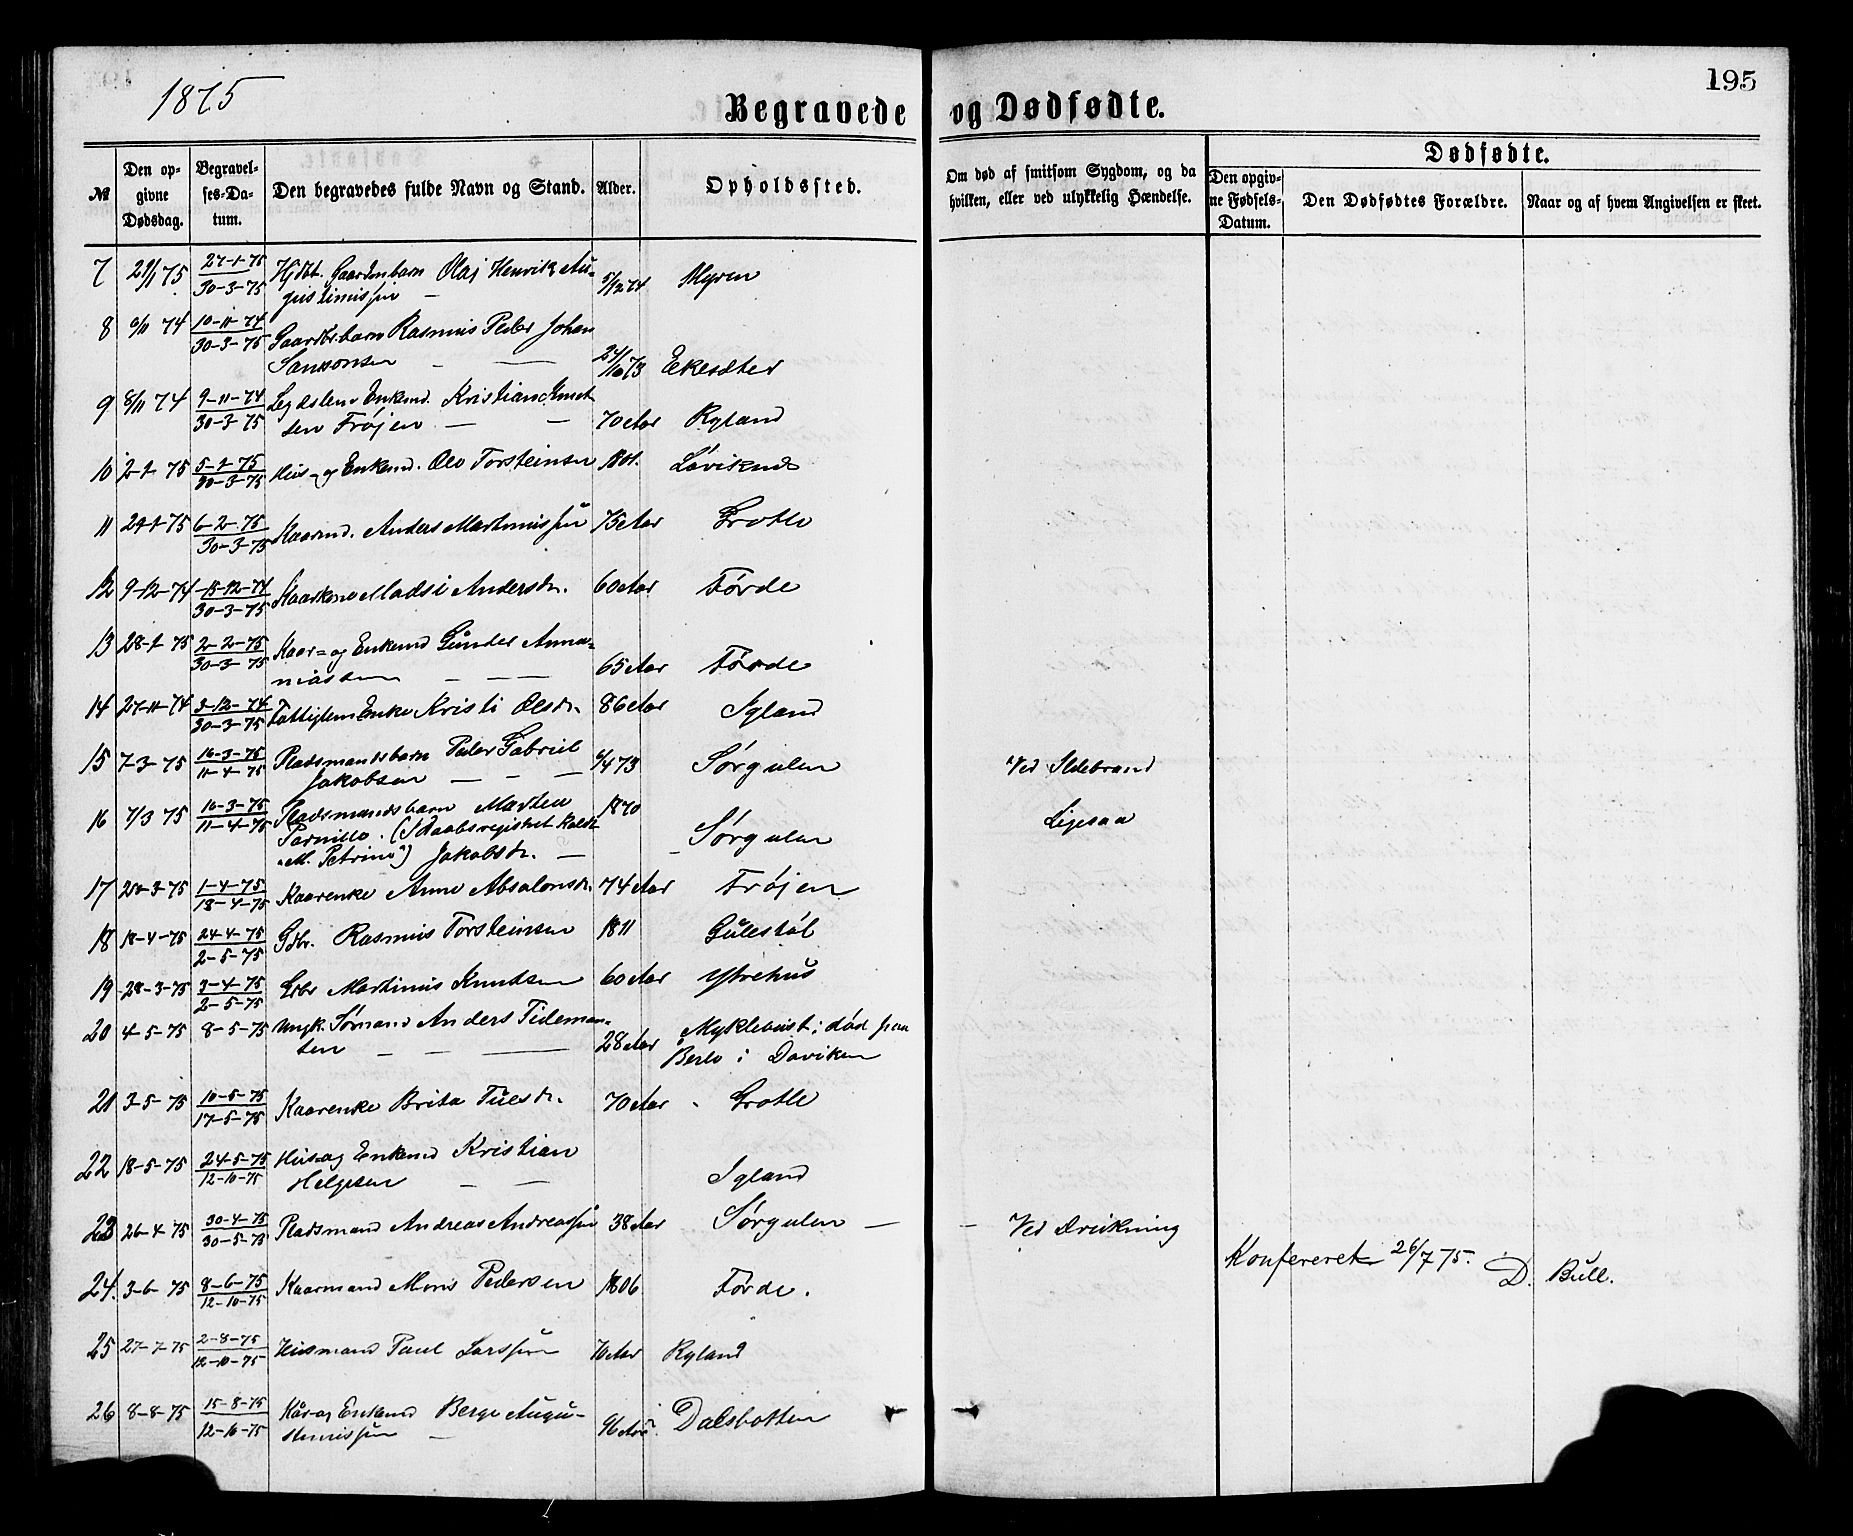 1875
Begravede og Dødfødte.
195
№
Den opgivne Dødsdag.
Begravelses-Datum.
Den begravedes fulde Navn og Stand.
Alder.
Opholdssted.
Om død af smitsom Sygdom, og da hvilken, eller ved ulykkelig Hændelse.
Dødfødte.
Den opgivne Fødsels-Datum.
Den Dødfødtes Forældre.
Naar og af hvem Angivelsen er skeet.
7 2 75 27-1-75 Olai Henrik Au-
30-3-75 gustinussen — 5/12 74 Myren
8 6/11 74 10-11-74 Gaardbr.barn Rasmus Peder Johan
30-3-75 Samsonsen — — 24/10 73 Ekesæter
9 8/11 74 9-11-74 Lægdslem Enkemd. Kristian Knut-
30-3-75 sen Frøjen — — 70 Aar Ryland
10 2-1-75 5-1-75 Hus- og Enkemd. Ole Torsteinsen 1801. Løviknes
30-3-75
11 29-1-75 6-2-75 Kaarmd. Anders Martinussen 75 Aar Grotle
30-3-75
12 9-12-74 15-12-74 Kaarkone Madsi Andersdr. 60 Aar Førde
30-3-75
13 28-1-75 2-2-75 Kaar- og Enkemd Gunder Anna-
30-3-75 niassen — — — 65 Aar Førde
14 27-11-74 3-12-74 Fattiglem Enke Kristi Olsdr. 86 Aar Igland
30-3-75
15 7-3-75 16-3-75 Pladsmandsbarn Peder Gabriel
11-4-75 Jakobsen — — — 6/4 73 Sørgulen Ved Ildebrand
16 7/3 75 16-3-75 Pladsmandsbarn Marten 1870
11-4-75 Parnille. (I Daabsregistret kaldt
"M. Petrine") Jakobsdr. — Sørgulen Ligesaa
17 25-3-75 1-4-75 Kaarenke Anne Absalonsdr. 74 Aar Frøjen
18-4-75
18 18-4-75 24-4-75 Gdbr. Rasmus Torsteinsen 1811 Gulestøl
2-5-75
19 28-3-75 3-4-75 Martinus Knudsen 60 Aar Ytrehus
2-5-75
20 4-5-75 8-5-75 Ungk. Sømand Anders Tideman-
sen — — — 28 Aar Myklebust; død paa
Berle i Daviken
21 3-5-75 10-5-75 Kaarenke Brita Tuesdr. 70 Aar Grotle
17-5-75
22 18-5-75 24-5-75 Hus og Enkemd Kristian
12-10-75 Helgesen — — Igland
23 26-4-75 30-4-75 Pladsmand Andreas Andreassen 38 Aar Sørgulen — — Ved Drukning
30-5-75
Konfereret 26/7 75. D. Bull.
24. 3-6-75 8-6-75 Kaarmand Mons Pedersen 1806 Førde.
12-10-75
25 27-7-75 2-8-75 Husmand Paul Larssen 70 Aar Ryland
12-10-75
26 8-8-75 15-8-75 Kår og Enkemd Berge Augu-
12-10-75 stinussen — 96 Aar. Dalsbotten